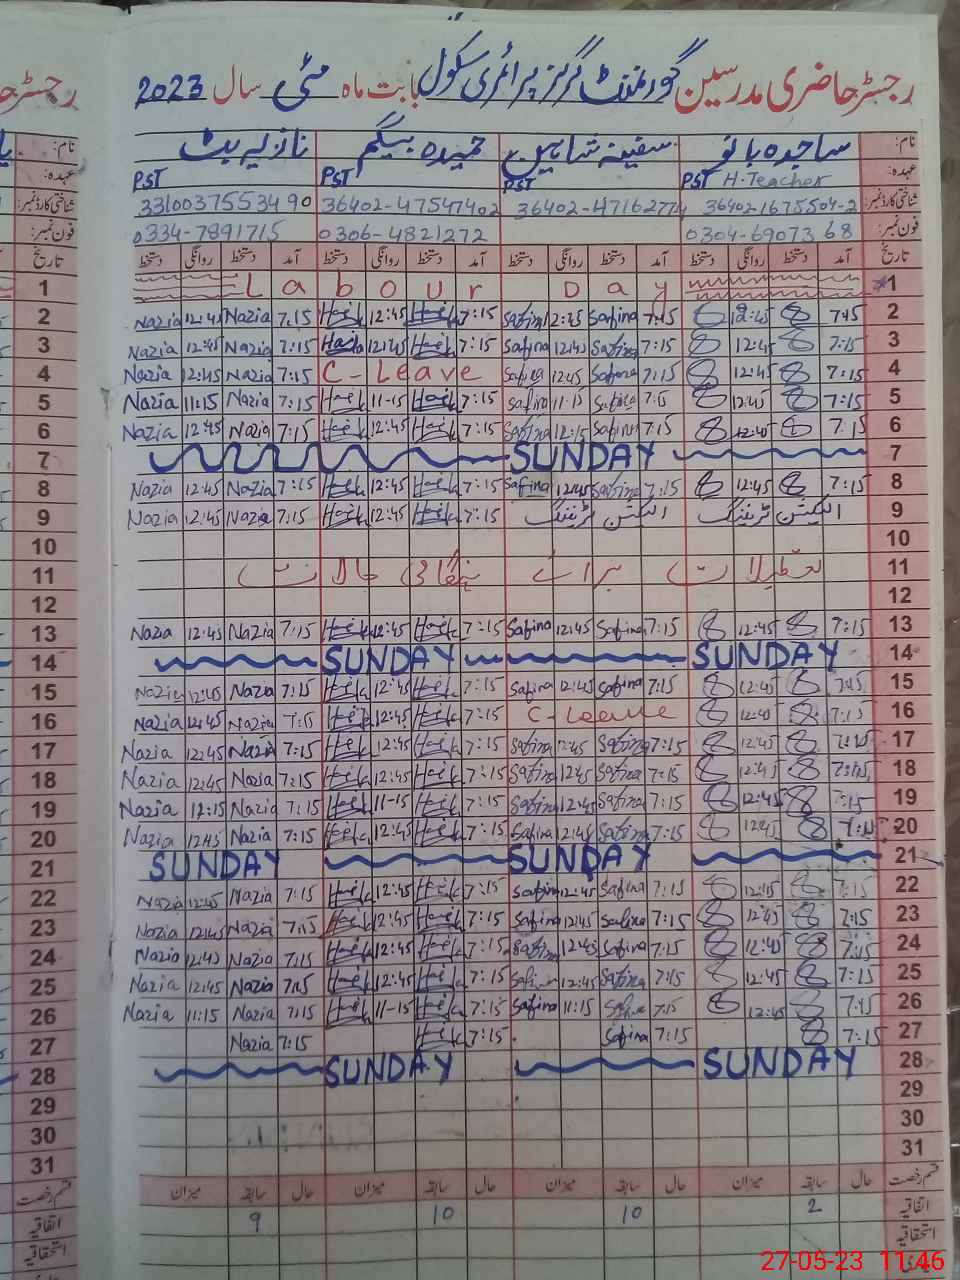 رجسٹر حاضری مدرسین گورنمنٹ گرلز پرائمری سکول بابت ماہ مئی سال 2023
نام: ساجدہ بانو سفینہ شاہین حمیدہ بیگم نازیہ بٹ
عہدہ: PST H.Teacher PST PST PST
شناختی کارڈ نمبر: 36402-1675504-2 36402-4716277 36402-47547402 3310037553490
فون نمبر: 0304-6907368 0306-4821272 0334-7891715
تاریخ آمد دستخط روانگی دستخط آمد دستخط روانگی دستخط آمد دستخط روانگی دستخط آمد دستخط روانگی دستخط
1 Labour Day 1
2 Nazia 12:45 Nazia 7:15 12:45 7:15 Safina 12:45 Safina 7:15 12:45 7:15 2
3 Nazia 12:45 Nazia 7:15 12:45 7:15 Safina 12:45 Safina 7:15 12:45 7:15 3
4 Nazia 12:45 Nazia 7:15 C-Leave Safina 12:45 Safina 7:15 12:45 7:15 4
5 Nazia 11:15 Nazia 7:15 11-15 7:15 Safina 11-15 Safina 7:15 12:45 7:15 5
6 Nazia 12:45 Nazia 7:15 12:45 7:15 Safina 12:15 Safina 7:15 12:45 7:15 6
7 SUNDAY 7
8 Nazia 12:45 Nazia 7:15 12:45 7:15 Safina 12:45 Safina 7:15 12:45 7:15 8
9 Nazia 12:45 Nazia 7:15 12:45 7:15 الیکشن ٹریننگ الیکشن ٹریننگ 9
10 10
11 تعطیلات برائے ہنگامی حالات 11
12 12
13 Nazia 12:45 Nazia 7:15 12:45 7:15 Safina 12:45 Safina 7:15 12:45 7:15 13
14 SUNDAY SUNDAY 14
15 Nazia 12:45 Nazia 7:15 12:45 7:15 Safina 12:45 Safina 7:15 12:45 7:15 15
16 Nazia 12:45 Nazia 7:15 12:45 7:15 C-Leave 12:45 7:15 16
17 Nazia 12:45 Nazia 7:15 12:45 7:15 Safina 12:45 Safina 7:15 12:45 7:15 17
18 Nazia 12:45 Nazia 7:15 12:45 7:15 Safina 12:45 Safina 7:15 12:45 7:15 18
19 Nazia 12:15 Nazia 7:15 11-15 7:15 Safina 12:45 Safina 7:15 12:45 7:15 19
20 Nazia 12:45 Nazia 7:15 12:45 7:15 Safina 12:45 Safina 7:15 12:45 7:15 20
21 SUNDAY SUNDAY 21
22 Nazia 12:45 Nazia 7:15 12:45 7:15 Safina 12:45 Safina 7:15 12:15 7:15 22
23 Nazia 12:45 Nazia 7:15 12:45 7:15 Safina 12:45 Safina 7:15 12:45 7:15 23
24 Nazia 12:45 Nazia 7:15 12:45 7:15 Safina 12:45 Safina 7:15 12:45 7:15 24
25 Nazia 12:45 Nazia 7:15 12:45 7:15 Safina 12:45 Safina 7:15 12:45 7:15 25
26 Nazia 11:15 Nazia 7:15 11-15 7:15 Safina 11:15 Safina 7:15 12:45 7:15 26
27 Nazia 7:15 7:15 Safina 7:15 7:15 27
28 SUNDAY SUNDAY 28
29 29
30 30
31 31
قسم رخصت حال سابقہ میزان حال سابقہ میزان حال سابقہ میزان حال سابقہ میزان قسم رخصت
اتفاقیہ 2 10 10 9 اتفاقیہ
استحقاقیہ استحقاقیہ
27-05-23 11:46